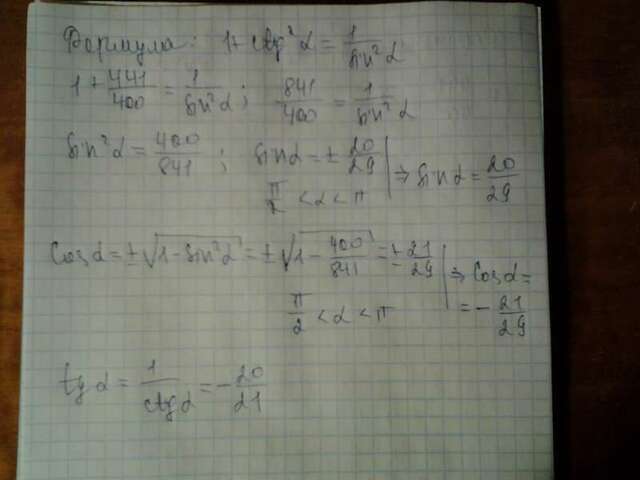 Формула: 1 + ctg²α = 1/sin²α
1 + 441/400 = 1/sin²α; 841/400 = 1/sin²α
sin²α = 400/841; sinα = ± 20/29 | ⇒ sinα = 20/29
π/2 < α < π
Cosα = ±√(1 - sin²α) = ±√(1 - 400/841) = ± 21/29 | ⇒ Cosα =
π/2 < α < π = - 21/29
tgα = 1/ctgα = - 20/21